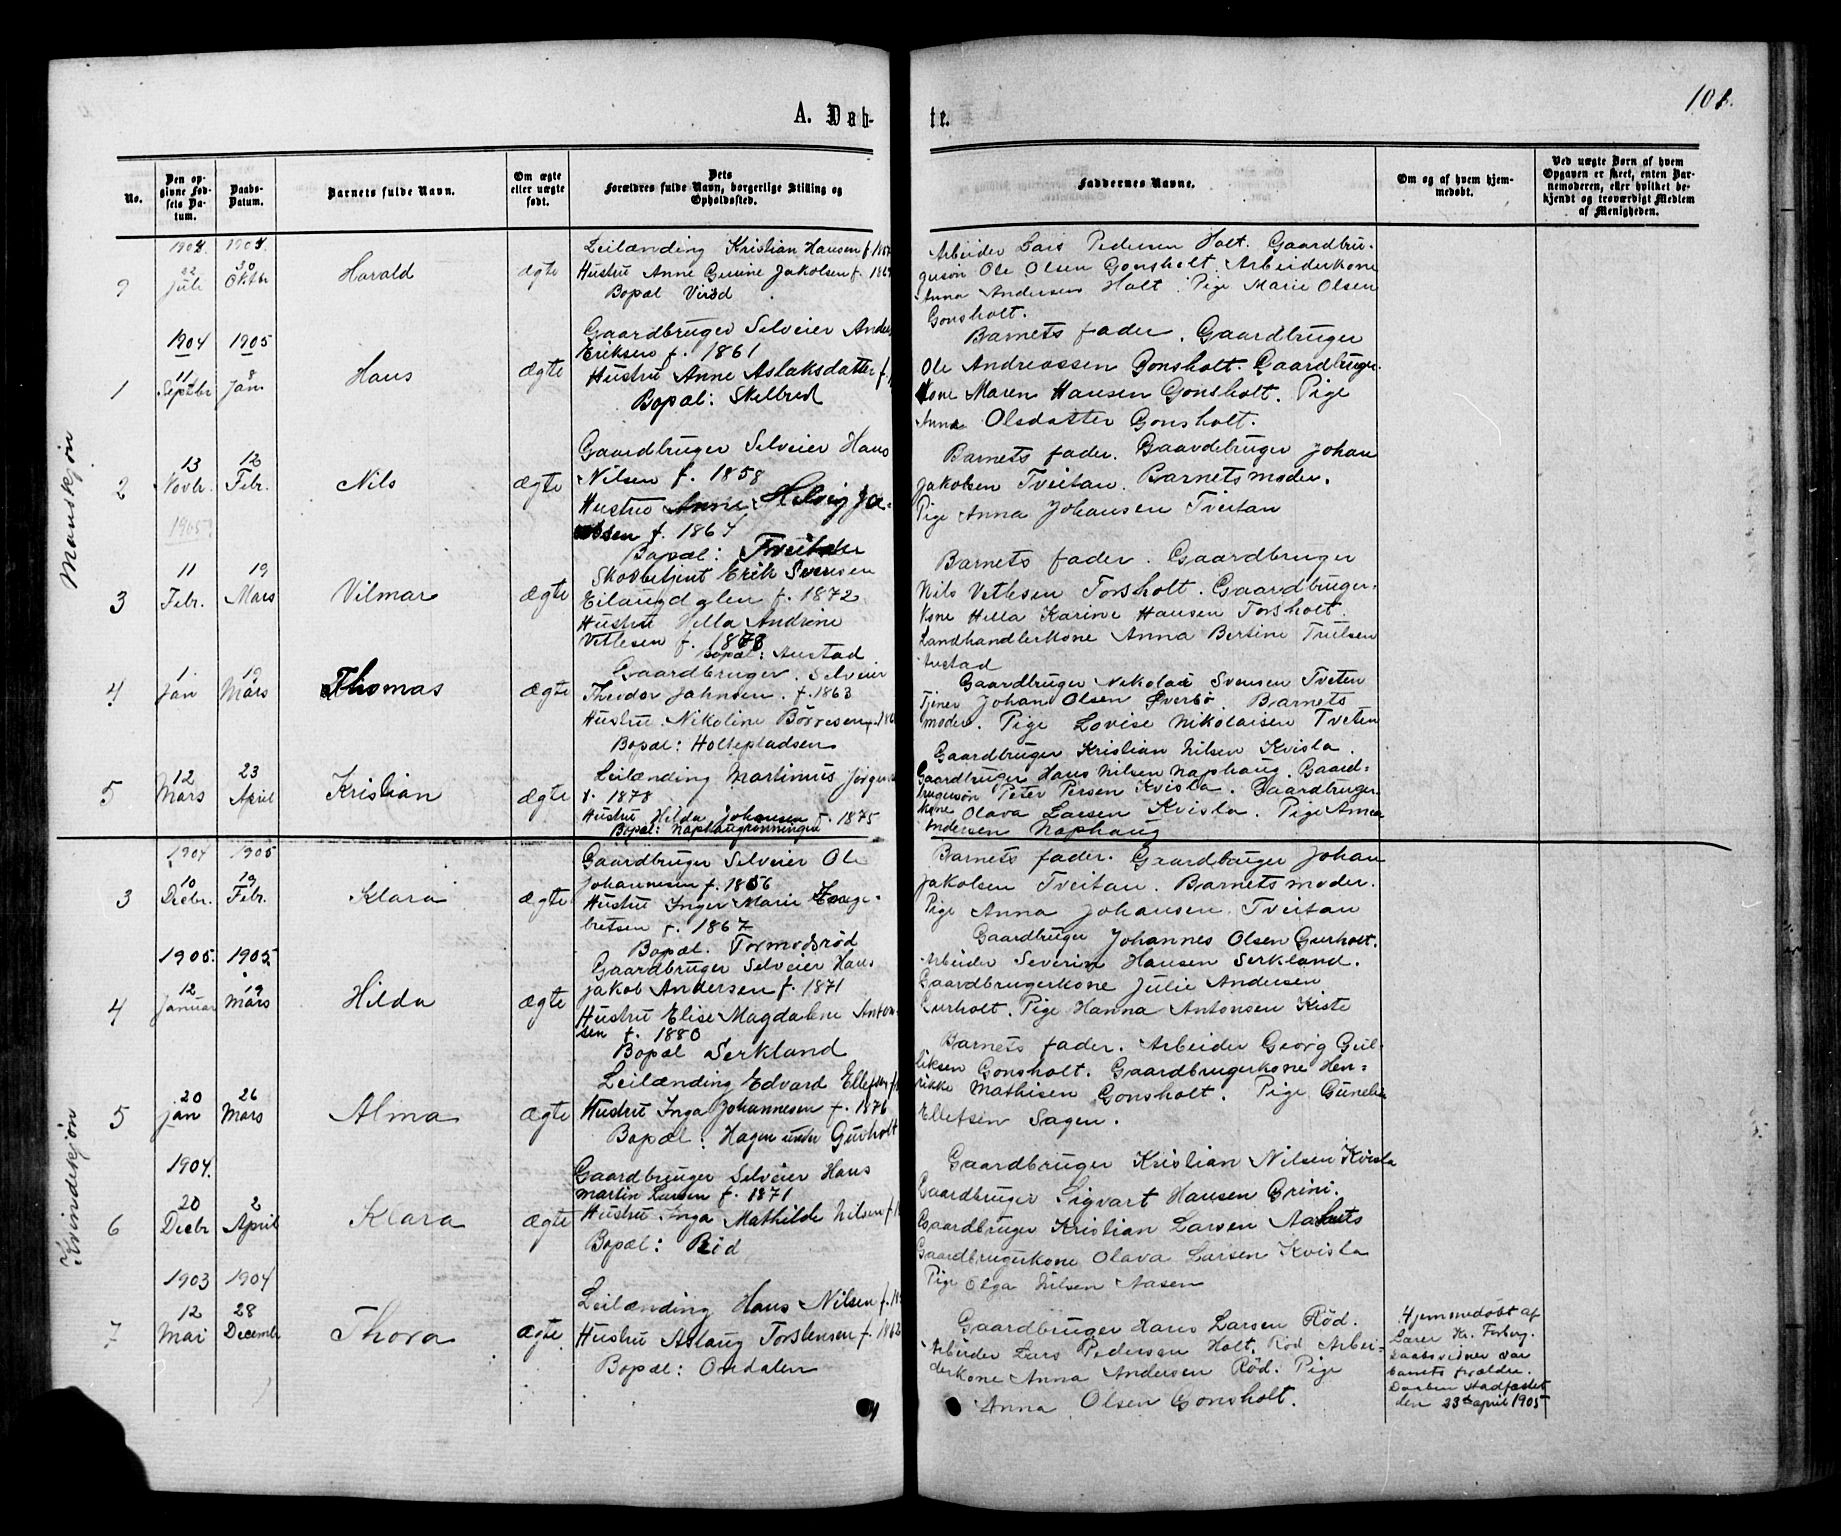 A. Døb-
te.
No.
Den op-
givne Fød-
sels Da-
tum.
Daabs-
Datum.
Barnets fulde Navn.
Om ægte
eller uægte
født.
Dets
Forældres fulde Navn, borgerlige Stilling og
Opholdssted.
Faddernes Navne.
Om og af hvem hjem-
medøbt.
Ved uægte Børn af hvem
Opgaven er skeet, enten Bar-
nemoderen, eller hvilket be-
kjendt og troværdigt Medlem
af Menigheden.
Manskjøn
1904. 1904
22 Juli
30 Oktbr
Harald
ægte
Leilænding Kristian Hansen f.
Hustru Anne Gurine Jakobsen f.
Bopæl Virød
Arbeider Lars Pedersen Holt. Gaardbru-
gersøn Ole Olsen Gonsholt. Arbeiderkone
Anna Andersen Holt. Pige Marie Olsen
Gonsholt.
1904 1905
1
11 Septbr
8 Jan.
Hans
ægte
Gaardbruger Selveier Andr
Eriksen f. 1861
Hustru Anne Aslaksdatter f.
Bopæl: Skilbred
Barnets fader. Gaardbruger
Ole Andreassen Gonsholt. Gaardbruger-
kone Maren Hansen Gonsholt. Pige
Anna Olsdatter Gonsholt.
2
13 Novbr.
12 Febr.
Nils
ægte
Gaardbruger Selveier Hans
Nilsen f. 1858
Hustru Anne Helvig Ja-
obsen f. 1864
Bopæl: Tveitan
Barnets fader. Gaardbruger Johan
Jakobsen Tveitan. Barnets moder.
Pige Anna Johansen Tveitan
1905
3
11 Febr.
19 Mars
Vilmar
ægte
Skovbetjent Erik Sversen
Eilaugdalen f. 1872
Hustru Hella Andrine
Vetlesen f. 1878
Bopæl: Austad
Barnets fader. Gaardbruger
Nils Vetlesen Torsholt. Gaardbruger-
kone Hella Karine Hansen Torsholt.
Landhandlerkone Anna Bertine Trulsen
Austad
4
1 Jan
19 Mars
Thomas
ægte
Gaardbruger. Selveier
Theodor Jahnsen. f. 1863
Hustru. Nikoline Børresen f.
Bopæl: Holtepladsen
Gaardbruger Nikolai Svensen Tveten
Tjener Johan Olsen Øverbø. Barnets
moder. Pige Lovise Nikolaisen Tveten
5
12 Mars
23 April
Kristian
ægte
Leilænding Martinius Jørgen
f. 1878
Hustru Hilda Johansen f. 1875
Bopæl: Naphaugrønningen
Gaardbruger Kristian Nilsen Kvisla.
Gaardbruger Hans Nilsen Naphaug. Gaard-
brugersøn Peter Persen Kvisla. Gaardbruger-
kone Olava Larsen Kvisla. Pige Anna
Andersen Naphaug
Kvindeskjøn
1904 1905
3
10 Decbr.
19 Febr.
Klara
ægte
Gaardbruger Selveier Ole
Johannesen f. 1856
Hustru Inger Marie Enge-
bretsen f. 1867
Bopæl. Tormodsrød
Barnets fader. Gaardbruger Johan
Jakobsen Tveitan. Barnets moder.
Pige Anna Johansen. Tveitan
1905. 1905
4
12 Januar
19 Mars
Hilda
ægte
Gaardbruger Selveier Hans
Jakob Andersen f. 1871
Hustru Elise Magdalene Anton-
sen f. 1880
Bopæl Serkland
Gaardbruger Johannes Olsen Gurholt.
Arbeider Severin Hansen Serkland.
Gaardbrugerkone Julie Andersen
Gurholt. Pige Hanna Antonsen Kiste
5
20 Jan
26 Mars
Alma
ægte
Leilænding Edvard Ellefsen f.
Hustru Inga Johannesen f. 1876
Bopæl: Hagen under Gurholt
Barnets fader. Arbeider Georg Gul-
liksen Gonsholt. Gaardbrugerkone Hen-
rikke Mathisen Gonsholt. Pige Gunelie
Ellefsen Sagen.
1904.
6
20 Decbr
2 April
Klara
ægte
Gaardbruger Selveier Hans
Martin Larsen f. 1871
Hustru Inga Mathilde Nilsen f.
Bopæl: Rød
Gaardbruger Kristian Nilsen Kvisla
Gaardbruger Sigvart Hansen Grini.
Gaardbruger Kristian Larsen
Gaardbrugerkone Olava Larsen Kvisla
Pige Olga Nilsen Aasen
1903 1904
7
12 Mai
28 Decembr
Thora
ægte
Leilænding Hans Nilsen f.
Hustru Aslaug Torstensen f. 1862
Bopæl: Ondalen
Gaardbruger Hans Larsen Rød.
Arbeider Lars Pedersen Holt. Rød Arbei-
derkone Anna Andersen Rød. Pige
Anna Olsen Gonsholt.
Hjemmedøbt af
Lærer Kr. Forberg.
Daabsvidner var
barnets forældre.
Daaben stadfæstet
den 23de april 1905